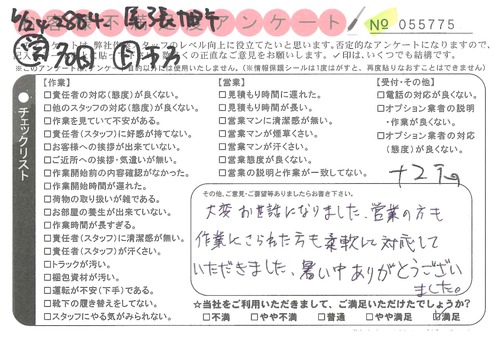 お客様不満足度アンケート
No 055775
6/24 2884 尾張旭市
弊社作業スタッフのレベル向上に役立てたいと思います。否定的なアンケートになりますので、
直なご意見をお願いします。✓印は、いくつでも結構です。
目的以外には使用いたしません。(※情報保護シールは1度はがすと、再度貼りなおすことはできません)
チェックリスト
【作業】
□責任者の対応(態度)が良くない。
□他のスタッフの対応(態度)が良くない。
□作業を見ていて不安がある。
□責任者(スタッフ)に好感が持てない。
□お客様への挨拶が出来ていない。
□ご近所への挨拶・気遣いが無い。
□作業開始前の内容確認がなかった。
□作業開始時間が遅れた。
□荷物の取り扱いが雑である。
□お部屋の養生が出来ていない。
□作業時間が長すぎる。
□責任者(スタッフ)に清潔感が無い。
□責任者(スタッフ)が汗くさい。
□トラックが汚い。
□梱包資材が汚い。
□運転が不安(下手)である。
□靴下の履き替えをしてない。
□スタッフにやる気がみられない。
【営業】
□見積もり時間に遅れた。
□見積もり時間が長い。
□営業マンに清潔感が無い。
□営業マンが煙草くさい。
□営業マンが汗くさい。
□営業態度が良くない。
□営業の説明と作業が一致してない。
【受付・その他】
□電話の対応が良くない。
□オプション業者の説明
・作業が良くない。
□オプション業者の対応
(態度)が良くない。
その他、ご意見・ご要望等ありましたらお書き下さい。
大変お世話になりました、営業の方も
作業にこられた方も柔軟に対応して
いただきました、暑い中ありがとうござい
ました。
☆当社をご利用いただきまして、ご満足いただけたでしょうか?
□不満 □やや不満 □普通 □やや満足 ☑満足